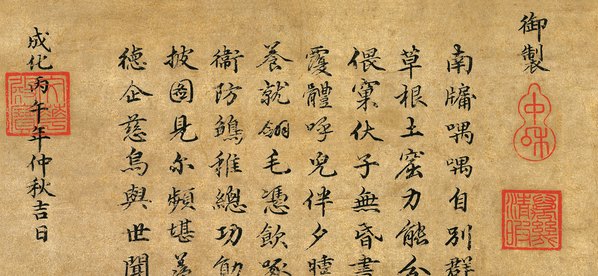 御製
中和
萬幾清暇
南牖喁喁自別群
草根土窟力能分
偎窠伏子無昏晝
覆體呼兒伴夕曛
養就翎毛憑飲啄
衛防鶵稚總功勳
披圖見爾頻堪羨
德企慈烏與世聞
成化丙午年仲秋吉日